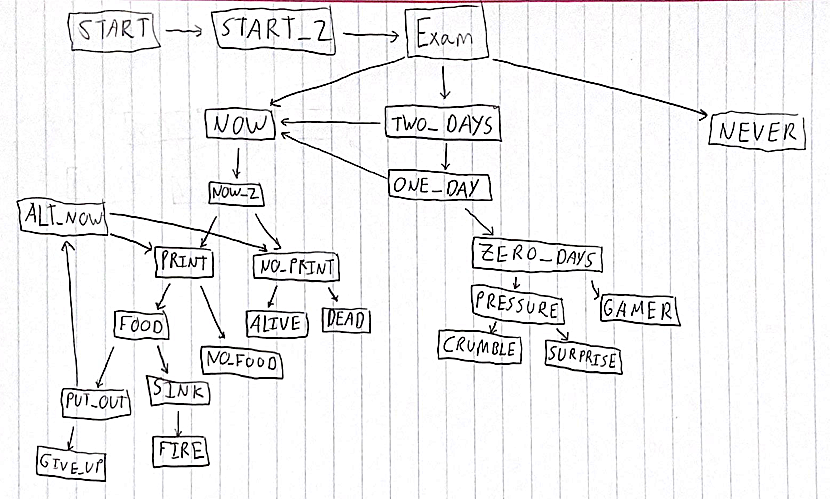 START
START_2
Exam
NOW
TWO_DAYS
NEVER
NOW_2
ONE_DAY
ALT_NOW
PRINT
NO_PRINT
ZERO_DAYS
FOOD
ALIVE
DEAD
PRESSURE
GAMER
NO_FOOD
CRUMBLE
SURPRISE
PUT_OUT
SINK
GIVE_UP
FIRE